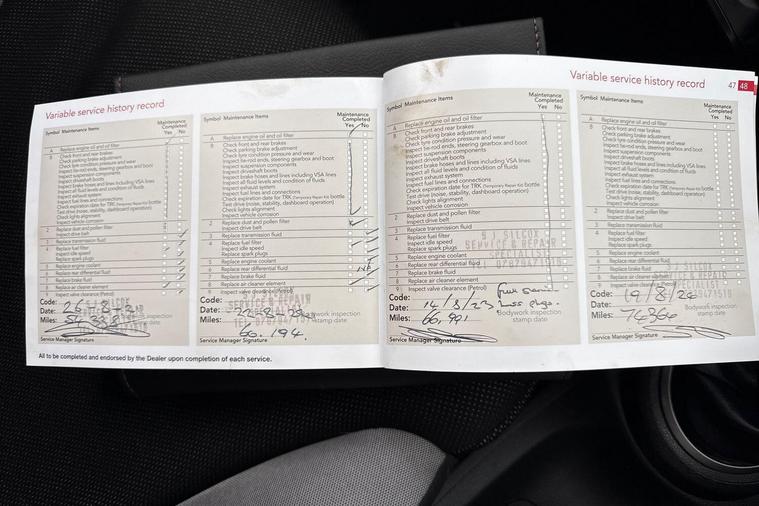 Variable service history record
Symbol Maintenance Items
Maintenance
Completed
Yes No
A Replace engine oil and oil filter
B Check front and rear brakes
Check parking brake adjustment
Check tyre condition pressure and wear
Inspect tie-rod ends, steering gearbox and boot
Inspect suspension components
Inspect driveshaft boots
Inspect brake hoses and lines including VSA lines
Inspect all fluid levels and condition of fluids
Inspect exhaust system
Inspect fuel lines and connections
Check expiration date for TRK (Temporary Repair Kit) bottle
Test drive (noise, stability, dashboard operation)
Check lights alignment
Inspect vehicle corrosion
2 Replace dust and pollen filter
Inspect drive belt
3 Replace transmission fluid
4 Replace fuel filter
Inspect idle speed
Replace spark plugs
5 Replace engine coolant
6 Replace rear differential fluid
7 Replace brake fluid
8 Replace air cleaner element
9 Inspect valve clearance (Petrol)
Code:
Date:
Miles:
Service Manager Signature
All to be completed and endorsed by the Dealer upon completion of each service.
Symbol Maintenance Items
Maintenance
Completed
Yes No
A Replace engine oil and oil filter
B Check front and rear brakes
Check parking brake adjustment
Check tyre condition pressure and wear
Inspect tie-rod ends, steering gearbox and boot
Inspect suspension components
Inspect driveshaft boots
Inspect brake hoses and lines including VSA lines
Inspect all fluid levels and condition of fluids
Inspect exhaust system
Inspect fuel lines and connections
Check expiration date for TRK (Temporary Repair Kit) bottle
Test drive (noise, stability, dashboard operation)
Check lights alignment
Inspect vehicle corrosion
2 Replace dust and pollen filter
Inspect drive belt
3 Replace transmission fluid
4 Replace fuel filter
Inspect idle speed
Replace spark plugs
5 Replace engine coolant
6 Replace rear differential fluid
7 Replace brake fluid
8 Replace air cleaner element
9 Inspect valve clearance (Petrol)
Code:
Date:
Miles:
66.194.
stamp date
Service Manager Signature
Variable service history record 47 48
Symbol Maintenance Items
Maintenance
Completed
Yes No
A Replace engine oil and oil filter
B Check front and rear brakes
Check parking brake adjustment
Check tyre condition pressure and wear
Inspect tie-rod ends, steering gearbox and boot
Inspect suspension components
Inspect driveshaft boots
Inspect brake hoses and lines including VSA lines
Inspect all fluid levels and condition of fluids
Inspect exhaust system
Inspect fuel lines and connections
Check expiration date for TRK (Temporary Repair Kit) bottle
Test drive (noise, stability, dashboard operation)
Check lights alignment
Inspect vehicle corrosion
2 Replace dust and pollen filter
Inspect drive belt
3 Replace transmission fluid
4 Replace fuel filter
Inspect idle speed
Replace spark plugs
5 Replace engine coolant
6 Replace rear differential fluid
7 Replace brake fluid
8 Replace air cleaner element
9 Inspect valve clearance (Petrol)
SILCOX
SERVICE & REPAIR
SPECIALIST
Code:
Date: 14/8/23
Miles: 66,991
Bodywork inspection
stamp date
Service Manager Signature
Symbol Maintenance Items
Maintenance
Completed
Yes No
A Replace engine oil and oil filter
B Check front and rear brakes
Check parking brake adjustment
Check tyre condition pressure and wear
Inspect tie-rod ends, steering gearbox and boot
Inspect suspension components
Inspect driveshaft boots
Inspect brake hoses and lines including VSA lines
Inspect all fluid levels and condition of fluids
Inspect exhaust system
Inspect fuel lines and connections
Check expiration date for TRK (Temporary Repair Kit) bottle
Test drive (noise, stability, dashboard operation)
Check lights alignment
Inspect vehicle corrosion
2 Replace dust and pollen filter
Inspect drive belt
3 Replace transmission fluid
4 Replace fuel filter
Inspect idle speed
Replace spark plugs
5 Replace engine coolant
6 Replace rear differential fluid
7 Replace brake fluid
8 Replace air cleaner element
9 Inspect valve clearance (Petrol)
Code:
Date: 19/8/24
Miles: 76366
Bodywork inspection
stamp date
Service Manager Signature